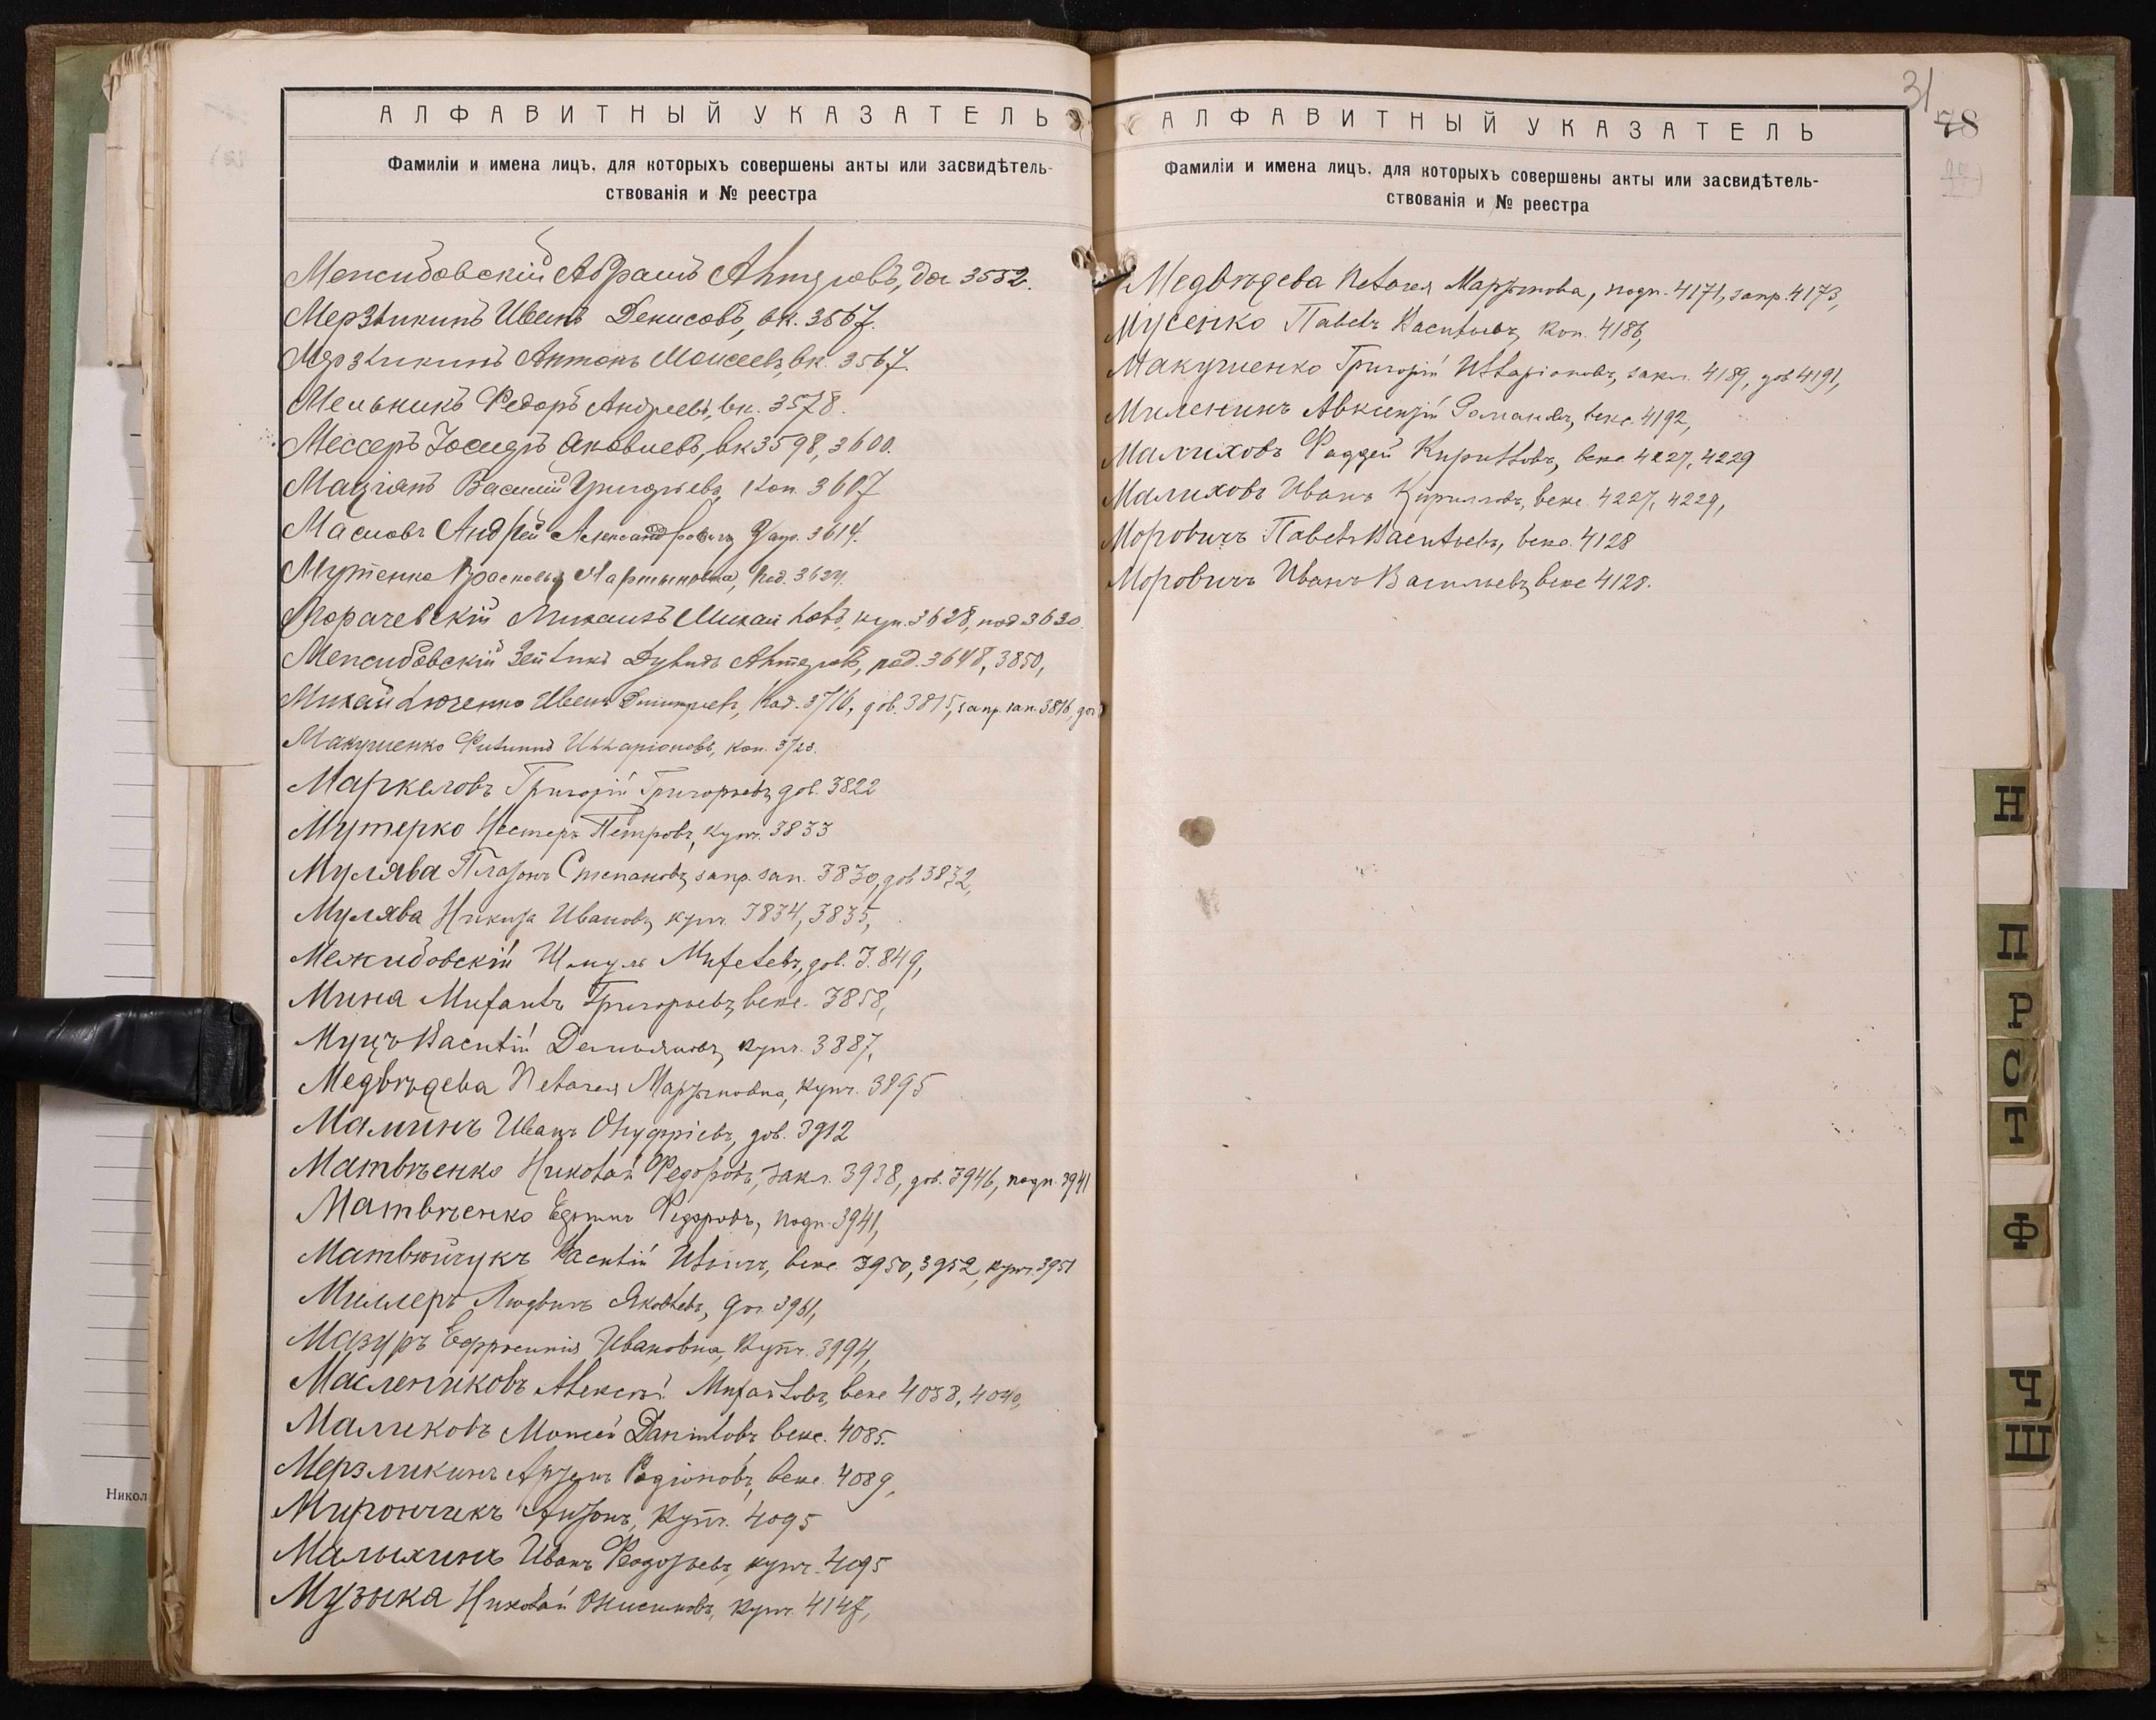 АЛФАВИТНЫЙ УКАЗАТЕЛЬ
Фамиліи и имена лицъ, для которыхъ совершены акты или засвидѣтель-
ствованія и № реестра
Межибовскій Абрамъ дог 3552.
Мерзликинъ Иванъ Денисовъ, вк. 3567.
Мерзликинъ Антонъ Моисеевъ, вк. 3567.
Мельникъ Федоръ Андреевъ, вк. 3578.
Мессеръ Іосифъ Яковлевъ, вк 3598, 3600.
Василій Григорьевъ, Коп. 3607
Масловъ Андрей Александровичъ, 3614.
Мартыновна,
Морачевскій Михаилъ Михайловъ, куп. 3628, под 3630.
Межибовскій Зейликъ Дувидъ под. 3648, 3850,
Михайлюченко Иванъ Дмитріевъ, 3716, дов. 3815, запр. зап. 3816,
Макушенко Филиппъ Илларіоновъ, коп. 3723.
Маркеловъ Григорій Григорьевъ, дов. 3822
Мутерко Нестеръ Петровъ, купч. 3833
Мулява Платонъ Степановъ, запр. зап. 3830, дов 3832,
Мулява Никита Ивановъ, купч. 3834, 3835,
Межибовскій Шмуль дов. 3849,
Мина Михаилъ Григорьевъ, векс. 3858,
Муцъ Василій Демьяновъ, купч. 3887,
Медвѣдева Пелагея Мартыновна, купч. 3895
Малинъ Иванъ Онуфріевъ, дов. 3912
Матвѣенко Николай Федоровъ, закл. 3938, дов. 3946, подп. 3941
Матвѣенко Федоровъ, подп. 3941,
Матвѣйчукъ Василій Ильичъ, векс. 3950, 3952, купч. 3951
Миллеръ Людвигъ Яковлевъ, дог. 3961,
Мазуръ Ефросинія Ивановна, Купч. 3994,
Маслениковъ Алексѣй Михайловъ, векс 4038, 4040,
Маликовъ Моисей Даниловъ векс. 4085.
Мерзликинъ Артемъ Родіоновъ, векс. 4089,
Мирончикъ Антонъ, Купч. 4095
Малыхинъ Иванъ купч. 4095
Музыка Николай Онисимовъ, купч. 4147,
31
78
АЛФАВИТНЫЙ УКАЗАТЕЛЬ
Фамиліи и имена лицъ, для которыхъ совершены акты или засвидѣтель-
ствованія и № реестра
Медвѣдева Пелагея Мартынова, подп. 4171, запр. 4173,
Мусенко Павелъ Васильевъ, Коп. 4186,
Макушенко Григорій Илларіоновъ, закл. 4189, дов 4191,
Миленинъ Авксентій Романовъ, векс. 4192,
Малиховъ Фаддей Кирилловъ, векс. 4227, 4229
Малиховъ Иванъ Кирилловъ, векс. 4227, 4229,
Моровичъ Павелъ Васильевъ, векс. 4128
Моровичъ Иванъ Васильевъ, векс 4128.
Н
П
Р
С
Т
Ф
Ч
Ш
Никол